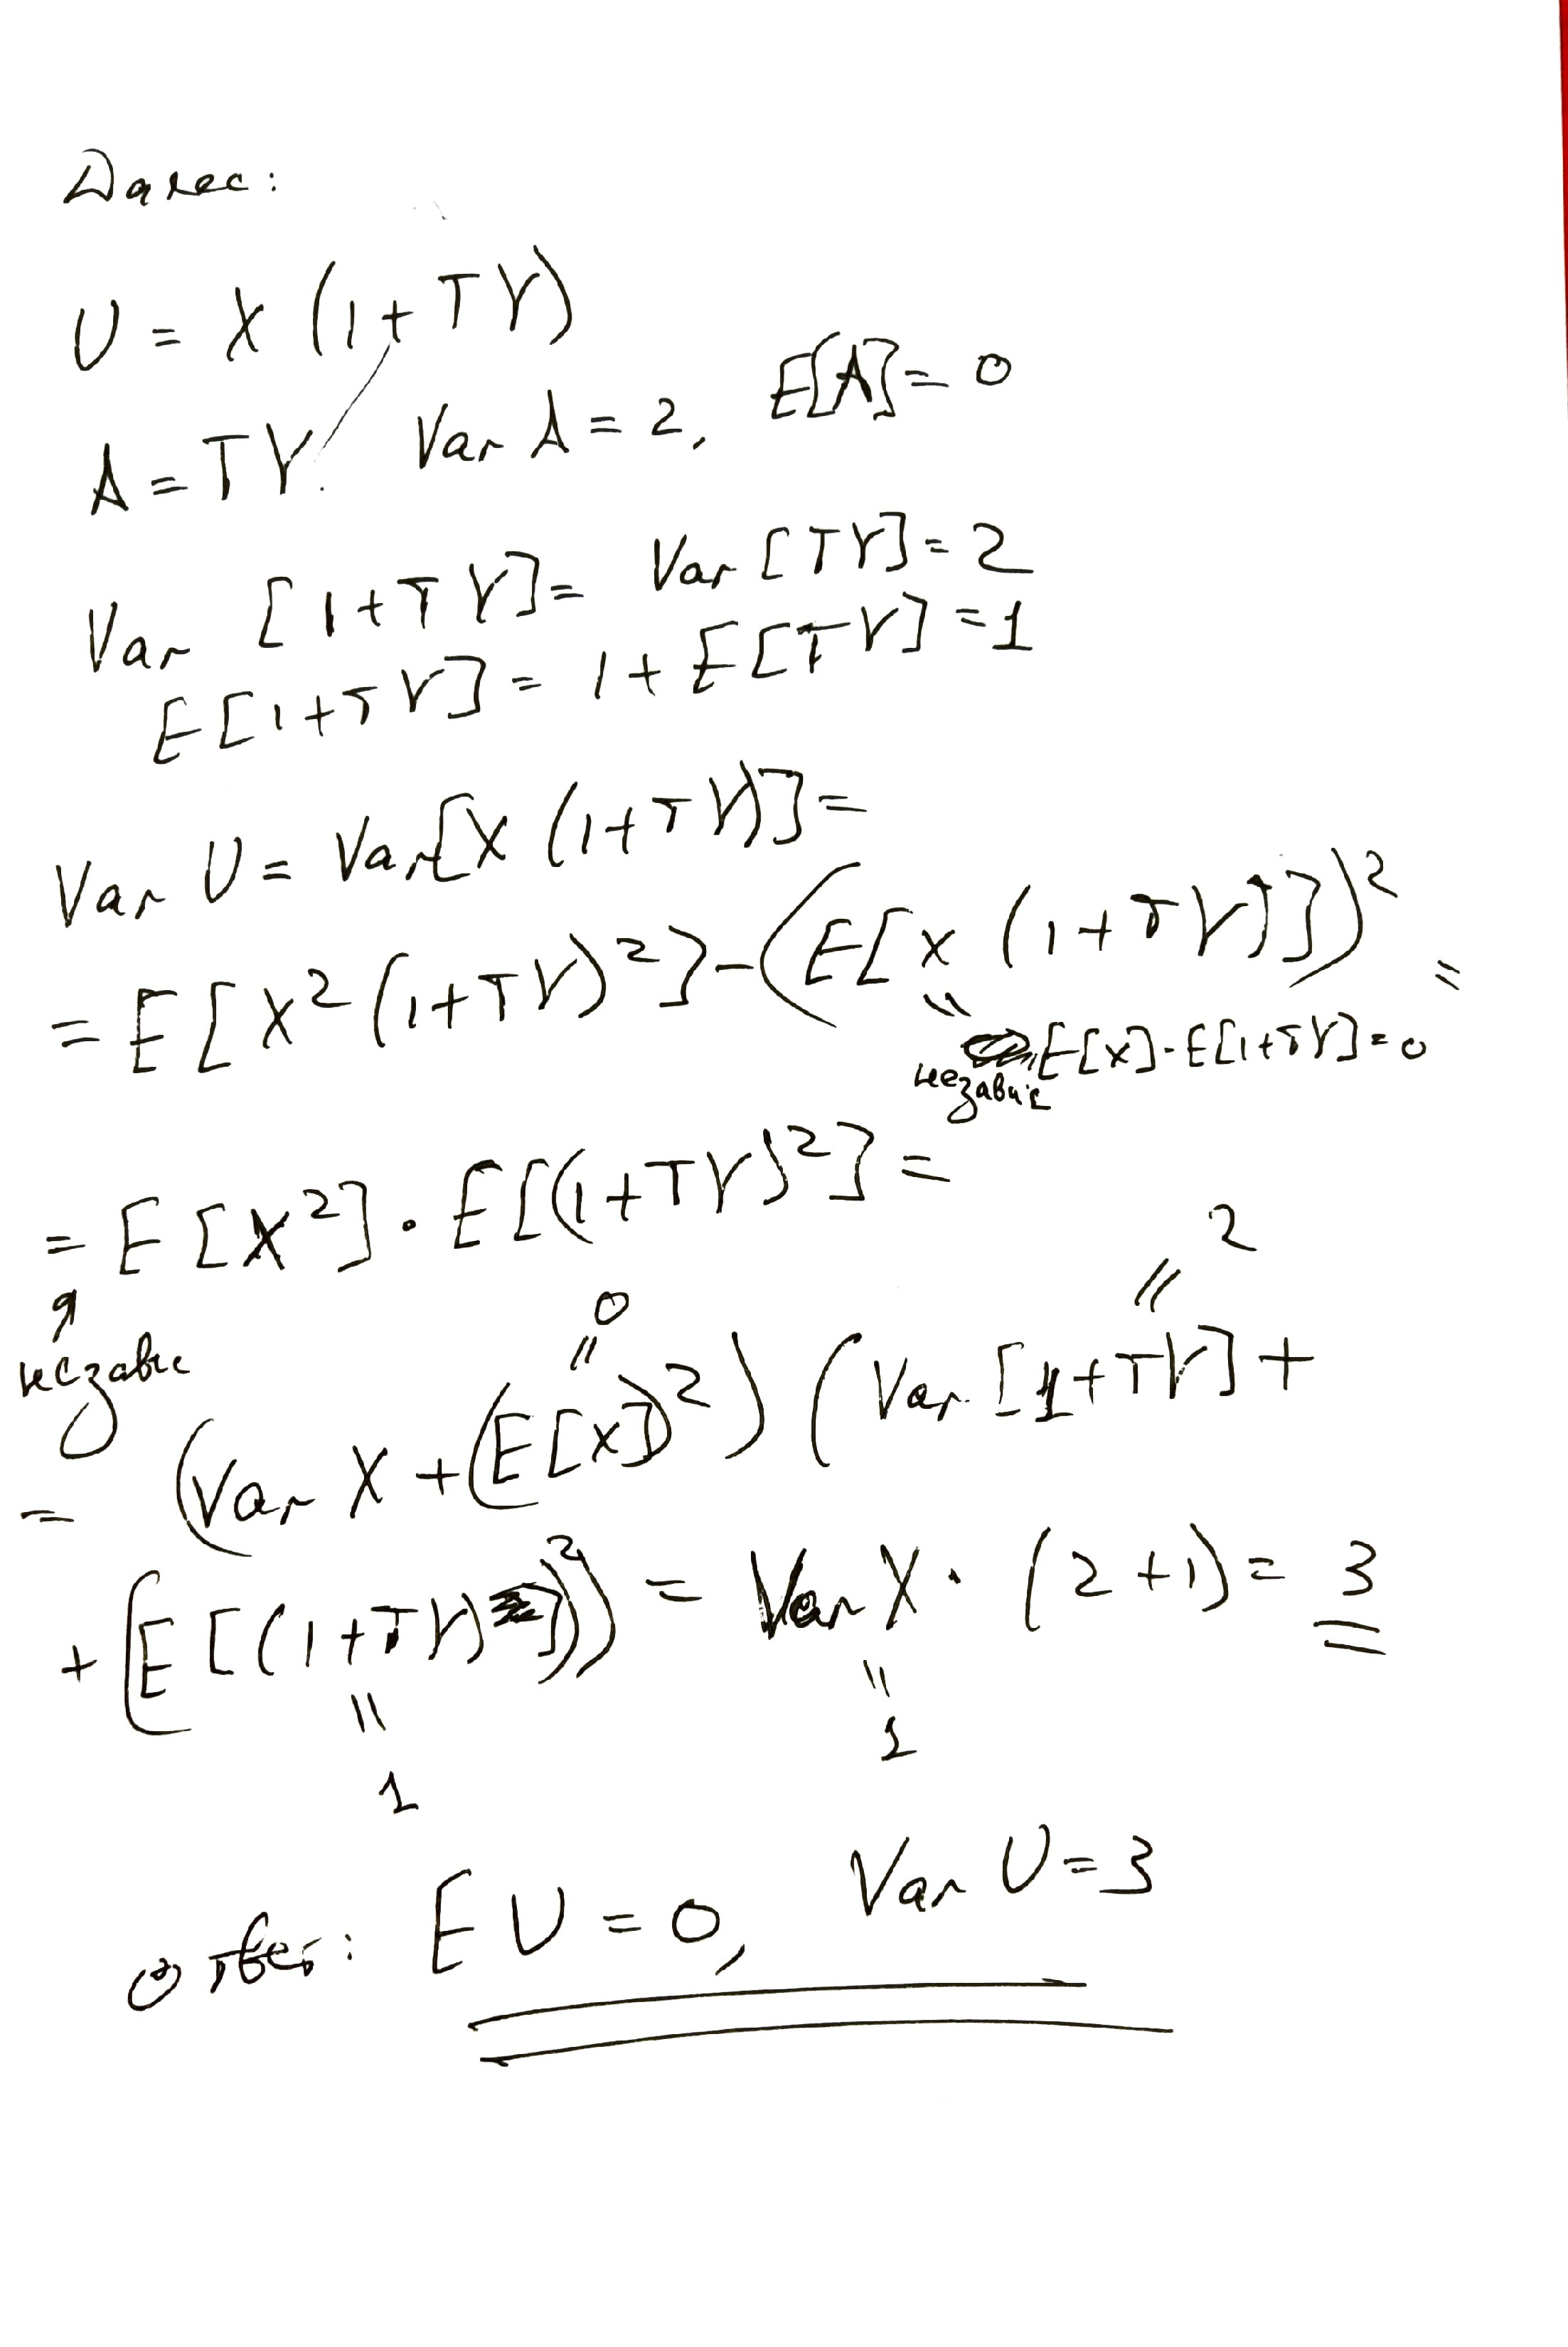 Далее:
U = X (1 + TY)
A = TY. Var A = 2, E[A] = 0
Var [1 + TY] = Var [TY] = 2
E[1 + TY] = 1 + E[TY] = 1
Var U = Var[X (1 + TY)] =
= E[X²(1 + TY)²] - (E[X (1 + TY)])² =
" независ E[X] · E[1 + TY] = 0
= E[X²] · E[(1 + TY)²] =
независ
0
"
2
"
= (Var X + (E[X])²) (Var [1 + TY] +
+ (E[(1 + TY)])²) = Var X · (2 + 1) = 3
" "
1 1
Ответ: E U = 0, Var U = 3